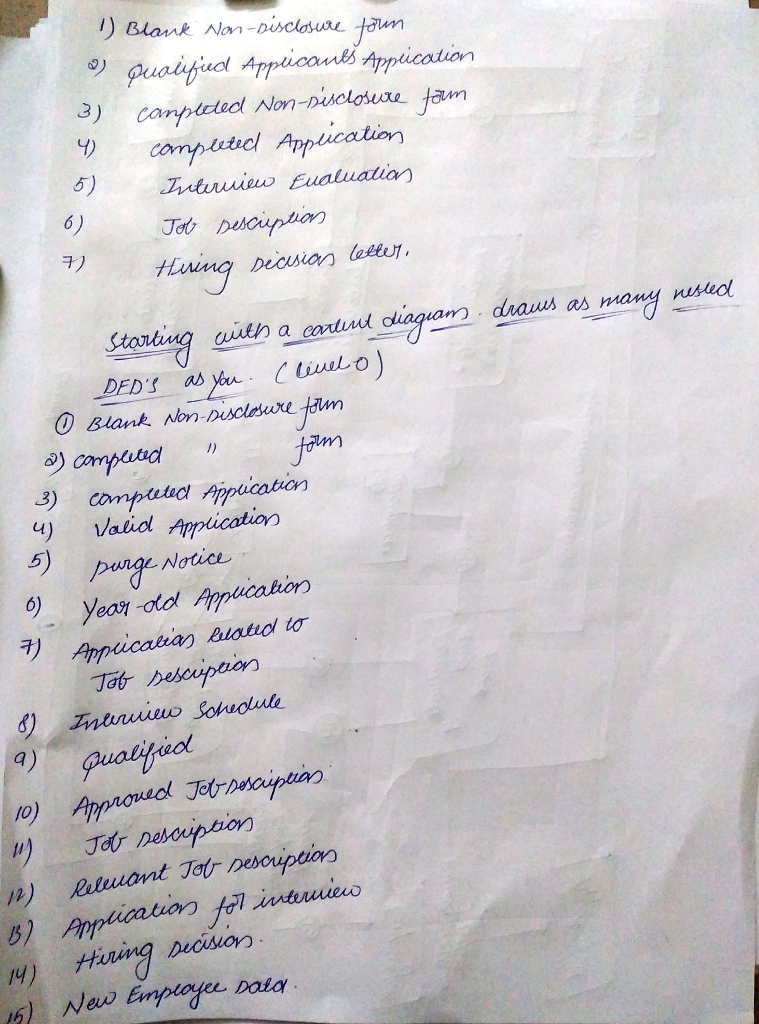 1) Blank Non-Disclosure form
2) Qualified Applicants Application
3) Completed Non-Disclosure form
4) Completed Application
5) Interview Evaluation
6) Job Description
7) Hiring Decision letter.
Starting with a content diagram. draws as many nested
DFD's as you. (level 0)
① Blank Non-Disclosure form
2) Completed " form
3) Completed Application
4) Valid Application
5) Purge Notice
6) Year-old Application
7) Application Related to
Job Description
8) Interview Schedule
9) Qualified
10) Approved Job Description
11) Job Description
12) Relevant Job Description
13) Application for interview
14) Hiring Decision.
15) New Employee Data.